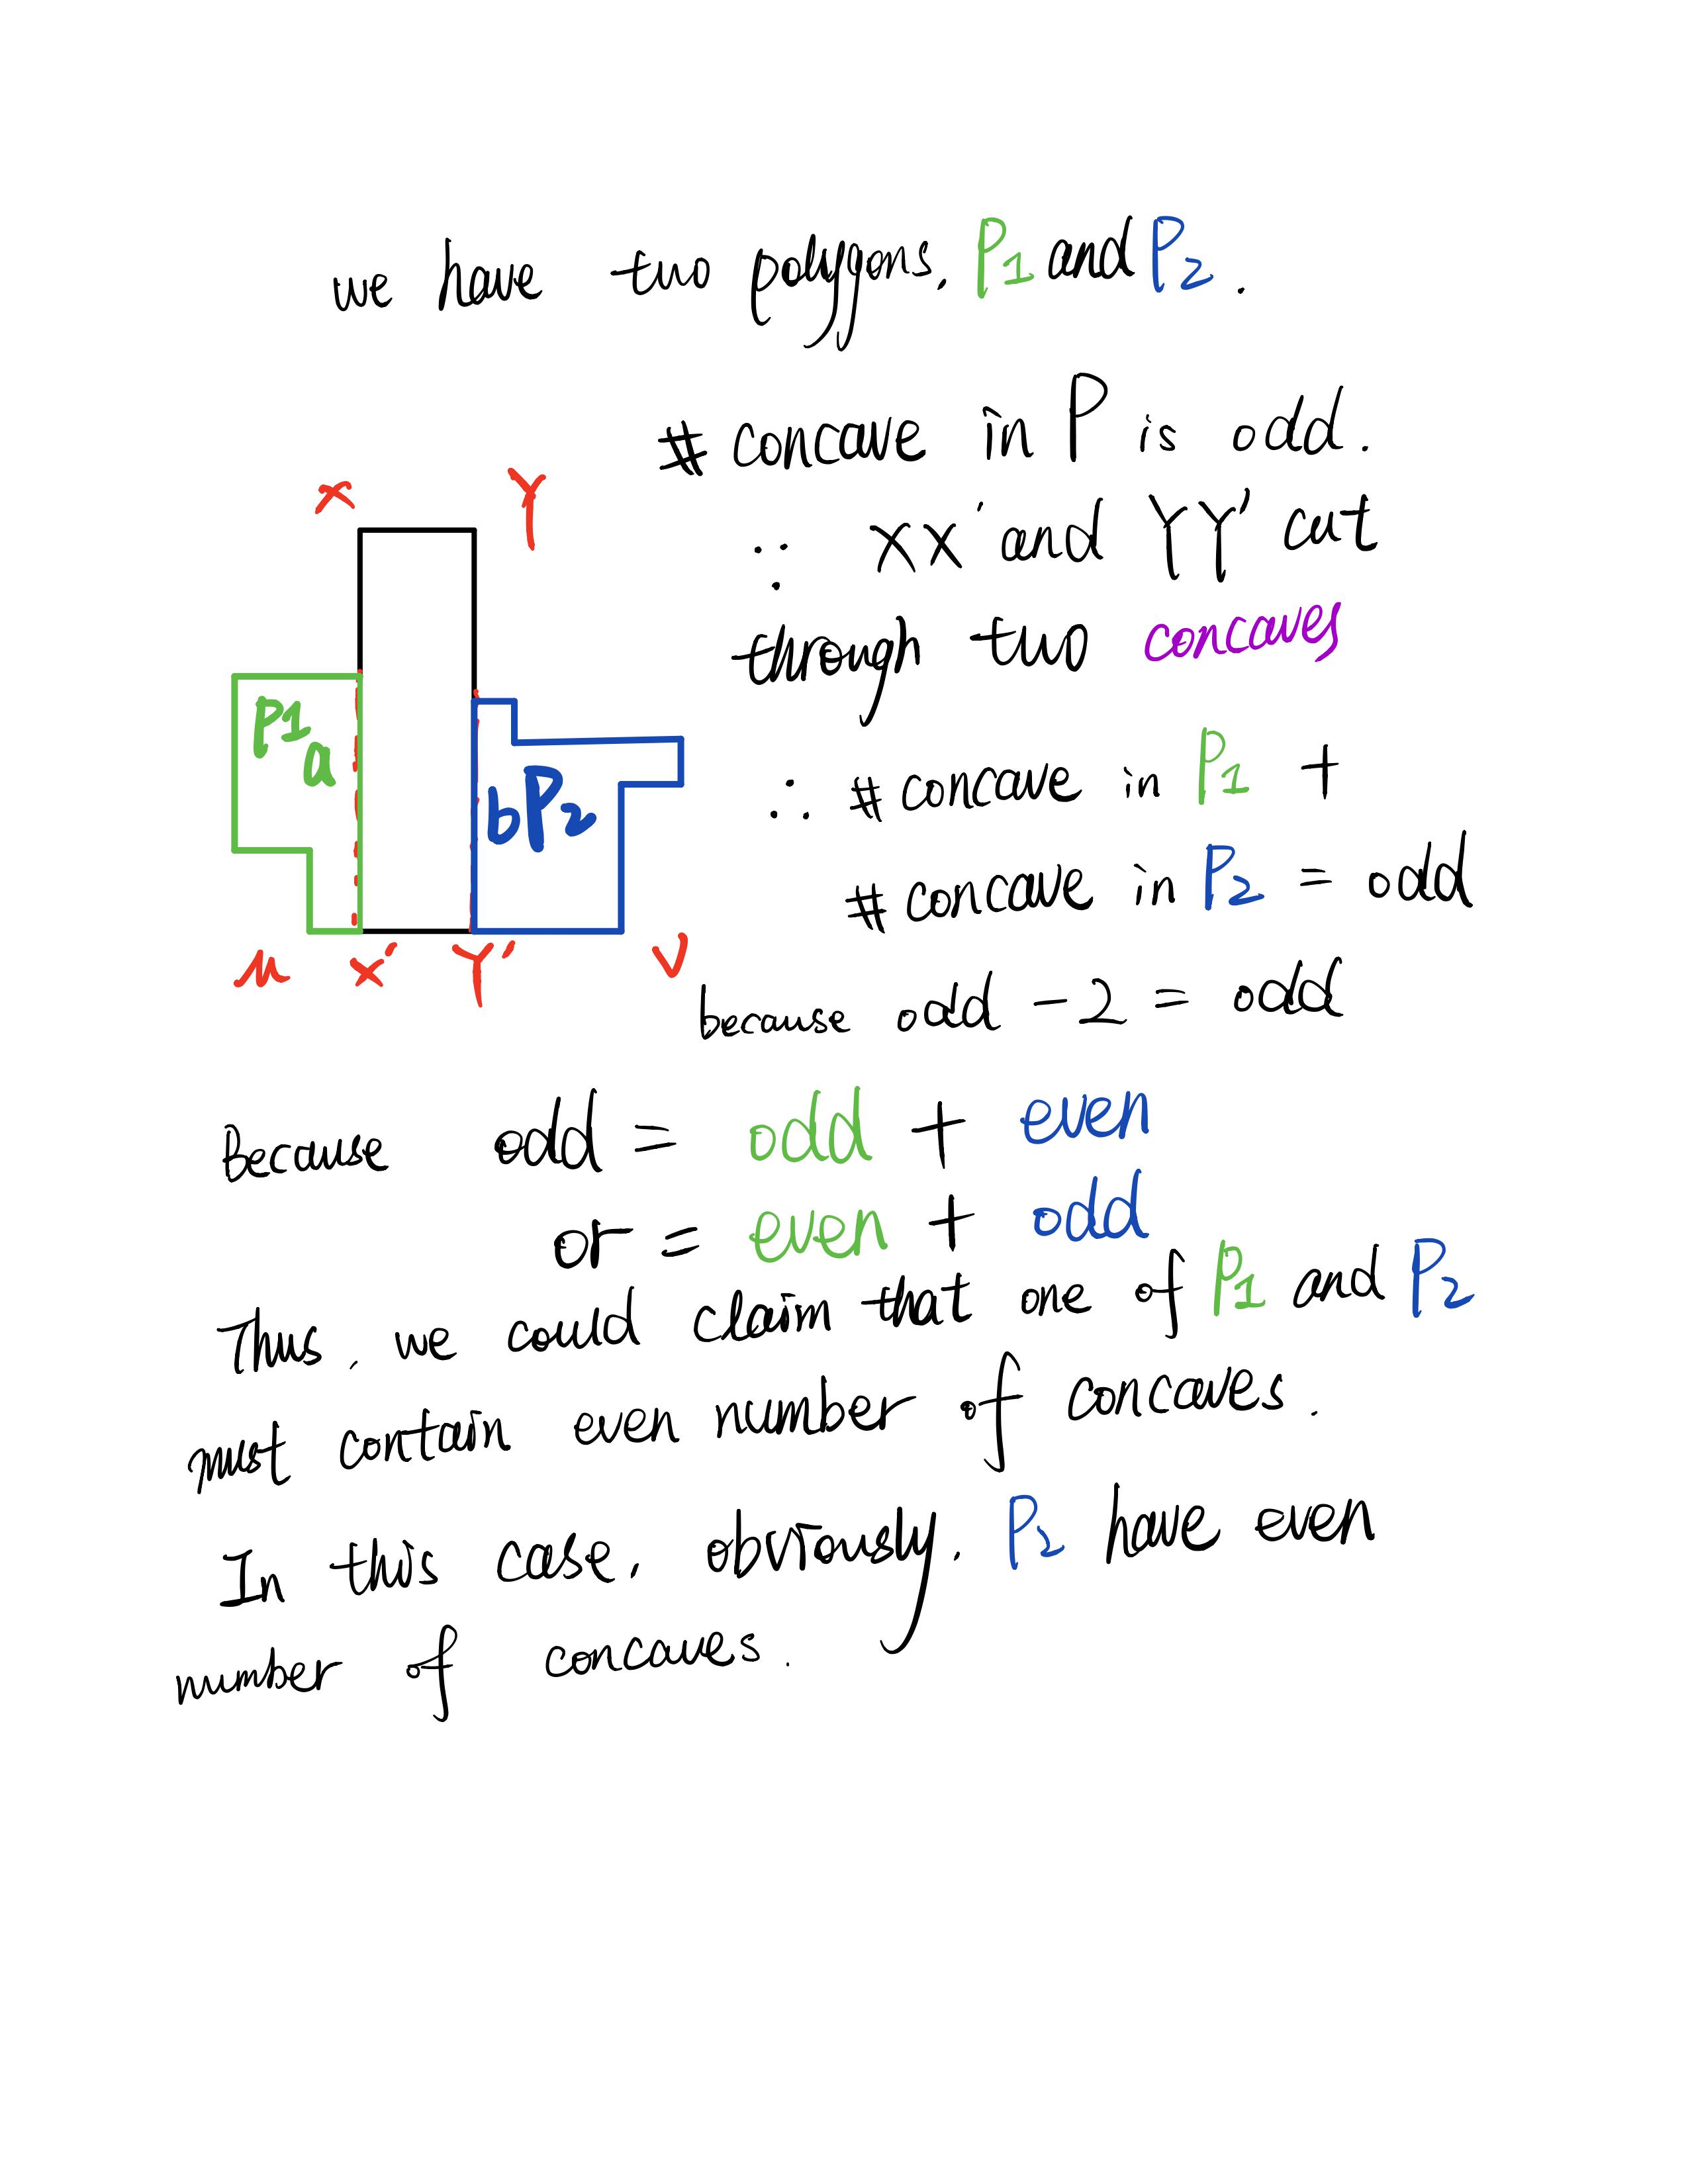 we have two polygons, P1 and P2.
# concave in P is odd.
X Y
∵ XX' and YY' cut
through two concaves
P1 a
b P2
∴ # concave in P1 +
# concave in P2 = odd
u X' Y' V
because odd - 2 = odd
Because odd = odd + even
or = even + odd
Thus, we could claim that one of P1 and P2
must contain even number of concaves.
In this case, obviously, P2 have even
number of concaves.